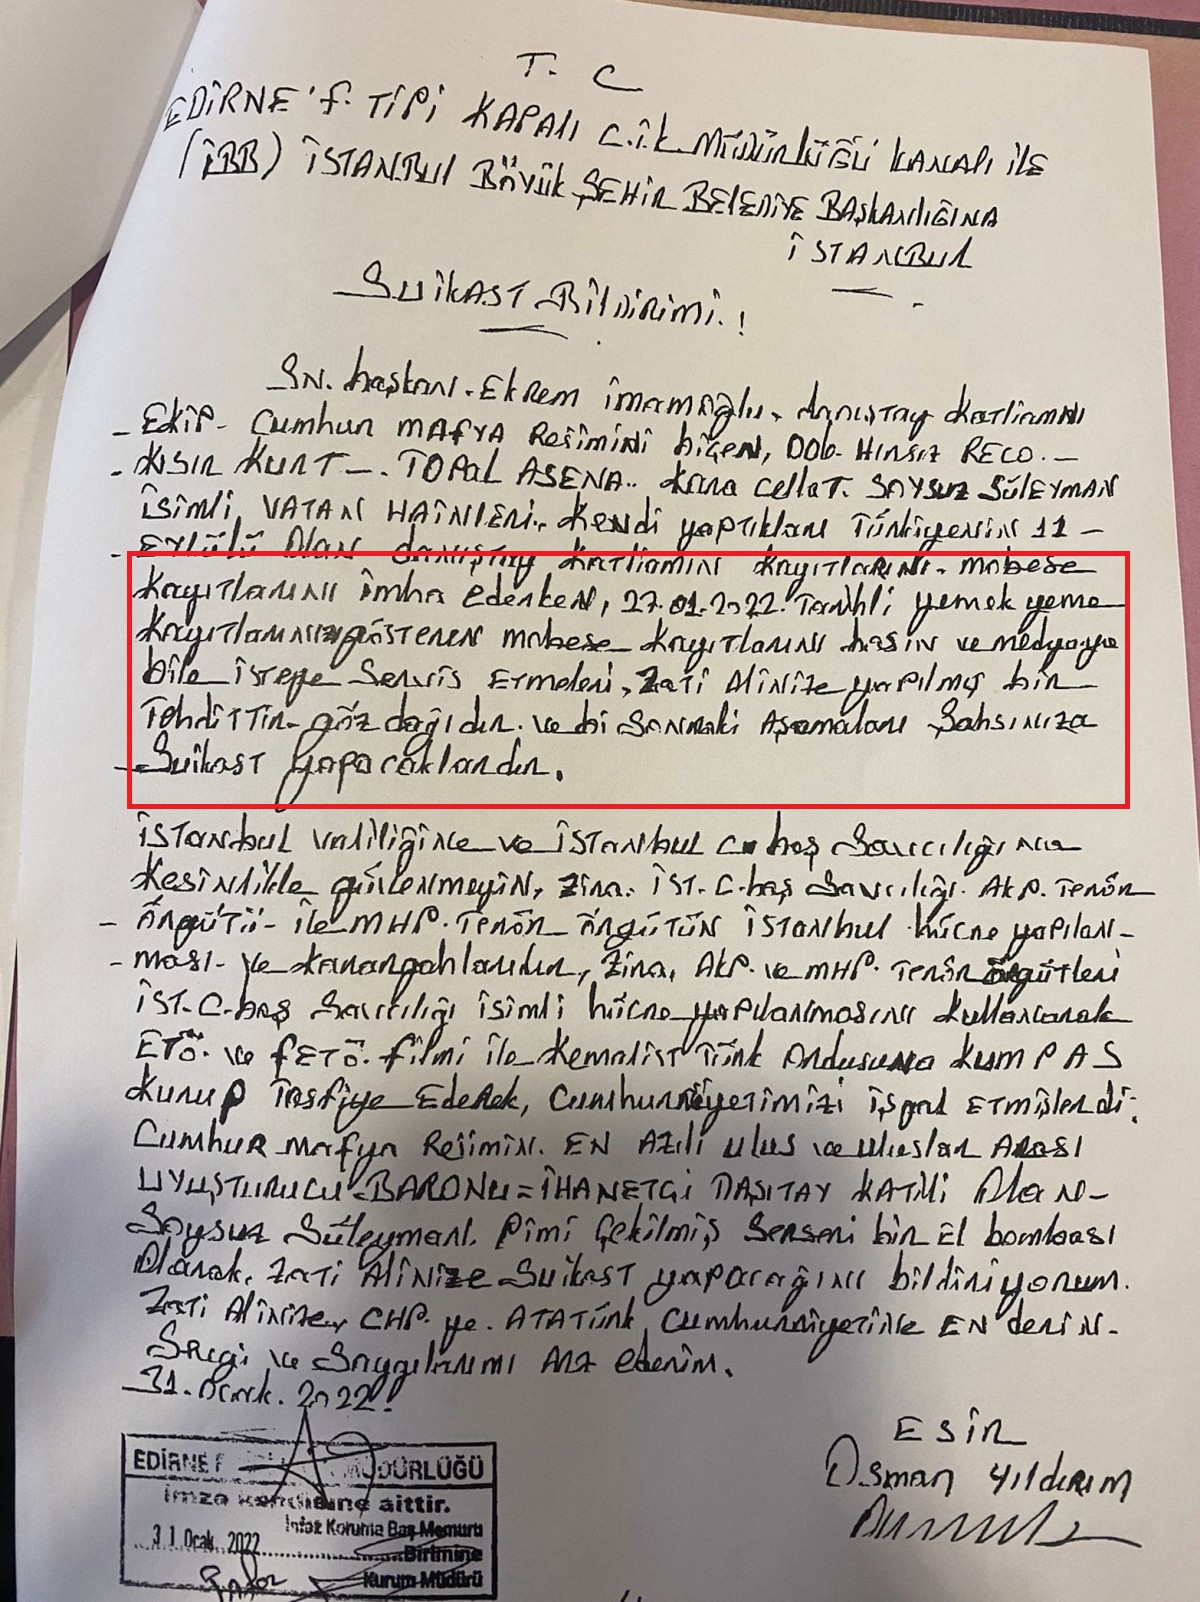 T. C
EDİRNE'F. TİPİ KAPALI C.İ.K. MÜDÜRLÜĞÜ KANALI İLE
(İBB) İSTANBUL BÖYÜK ŞEHİR BELEDİYE BAŞKANLIĞINA
İSTANBUL
Suikast Bildirimi.!
SN. başkan. Ekrem İmamoğlu. danıştay katliamını
- EKİP- Cumhur MAFYA Rejimini biçen, Hırsız RECO. -
- KISIR KURT-. TOPAL ASENA.. kara cellat. SOYSUZ SÜLEYMAN
İsimli, VATAN HAİNLERİ, kendi yaptıkları Türkiyenin 11 -
- EYLÜLÜ Olan danıştay katliamın kayıtlarını. mobese
kayıtlarını imha ederken, 27.01.2022. Tarihli yemek yeme
kayıtlarınızı gösteren mobese kayıtlarını basın ve medyaya
bile isteye Servis Etmeleri, Zati Alinize yapılmış bir
Tehdittir- göz dağıdır. ve bi Sonraki Aşamaları Şahsınıza
- Suikast yapacaklardır.
İstanbul valiliğine ve İstanbul C. baş Savcılığına
Kesinlikle güvenmeyin, Zira. İST. C. baş Savcılığı. AKP. Terör
- Örgütü- ile MHP. Terör Örgütün İstanbul hücre yapılan-
- ması- ve karargahlarıdır, Zira, AKP. ve MHP. Terör örgütleri
İST. C. baş Savcılığı isimli hücre yapılanmasını kullanarak
ETÖ. ve FETÖ. filmi ile Kemalist Türk Ordusuna KUMPAS
kurup Tasfiye Ederek, Cumhurriyetimizi işgal Etmişlerdi.
Cumhur mafya Rejimin. EN Azılı ulus ve uluslar Arası
UYUŞTURUCU=BARONU=İHANETÇİ DAŞITAY KATİLİ Olan-
Soysuz Süleyman. Pimi Çekilmiş Serseri bir El bombası
Olarak, Zati Alinize Suikast yapacağını bildiriyorum.
Zati Alinize, CHP. ye. ATATÜRK Cumhurriyetine EN derin.
Sevgi ve Saygılarımı Arz ederim.
31. Ocak. 2022.
ESİR
Osman Yıldırım
EDİRNE F MÜDÜRLÜĞÜ
İmza kendisine aittir.
31 Ocak 2022 İnfaz Koruma Baş Memuru
Birimine
Kurum Müdürü